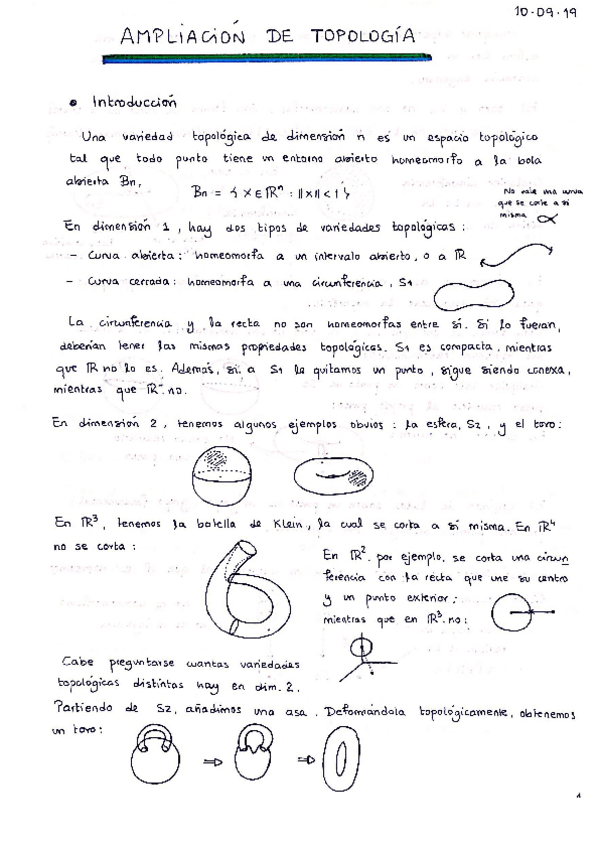 10-09-19
AMPLIACIÓN DE TOPOLOGÍA
• Introducción
Una variedad topológica de dimensión n es un espacio topológico
tal que todo punto tiene un entorno abierto homeomorfo a la bola
abierta Bn,
Bn = { x ∈ ℝⁿ : ||x|| < 1 }
No vale una curva
que se corte a sí
misma
En dimensión 1, hay dos tipos de variedades topológicas:
- Curva abierta: homeomorfa a un intervalo abierto, o a ℝ
- Curva cerrada: homeomorfa a una circunferencia, S1
La circunferencia y la recta no son homeomorfas entre sí. Si lo fueran,
deberían tener las mismas propiedades topológicas. S1 es compacta, mientras
que ℝ no lo es. Además, si a S1 le quitamos un punto, sigue siendo conexa,
mientras que ℝ no.
En dimensión 2, tenemos algunos ejemplos obvios: la esfera, S2, y el toro:
En ℝ³, tenemos la botella de Klein, la cual se corta a sí misma. En ℝ⁴
no se corta:
En ℝ², por ejemplo, se corta una circun
ferencia con la recta que une su centro
y un punto exterior;
mientras que en ℝ³ no:
Cabe preguntarse cuantas variedades
topológicas distintas hay en dim. 2.
Partiendo de S2, añadimos una asa. Deformándola topológicamente, obtenemos
un toro:
1